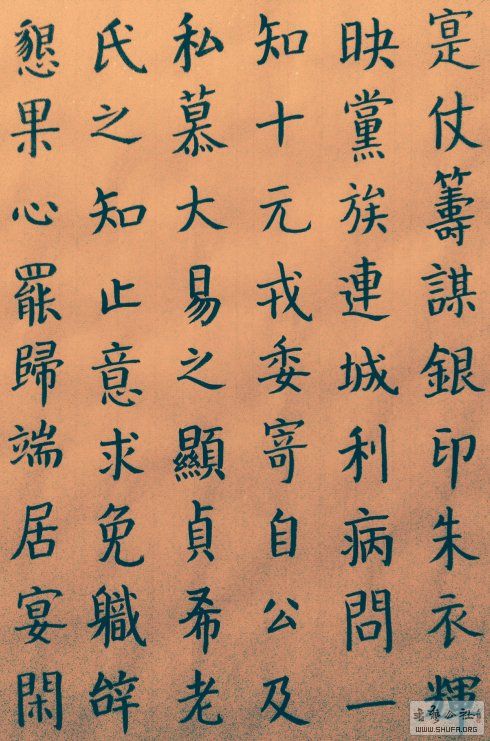 寔仗籌謀銀印朱衣輝
昳黨族連城利病問一
知十元戎委寄自公及
私慕大易之顯貞希老
氏之知止意求免職辭
懇果心罷歸端居宴閑
书法公社
WWW.SHUFA.ORG